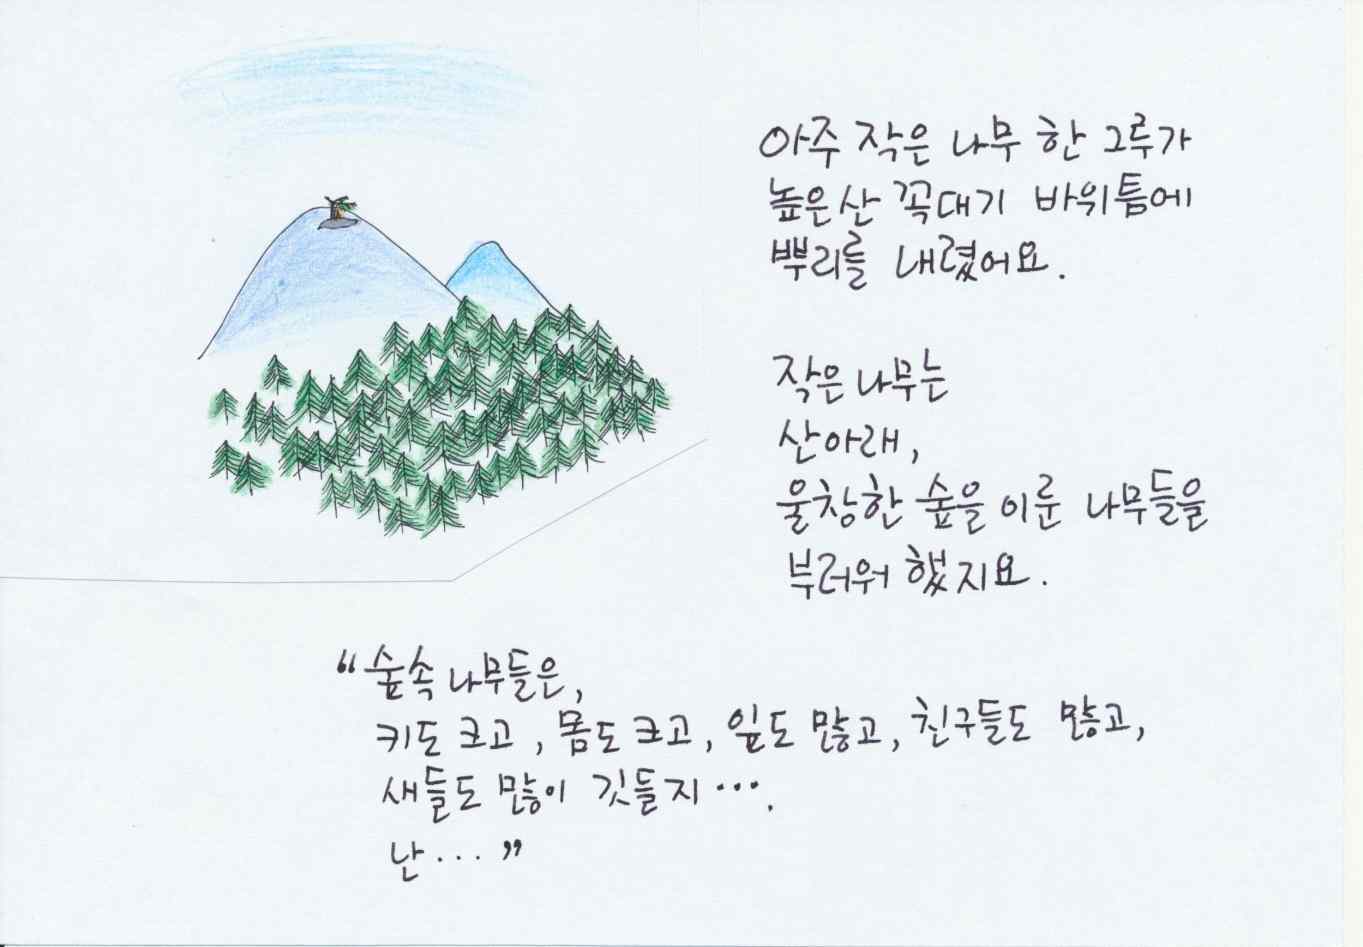 아주 작은 나무 한 그루가
높은 산 꼭대기 바위틈에
뿌리를 내렸어요.
작은 나무는
산아래,
울창한 숲을 이룬 나무들을
부러워 했지요.
“숲속 나무들은,
키도 크고, 몸도 크고, 잎도 많고, 친구들도 많고,
새들도 많이 깃들지….
난...”